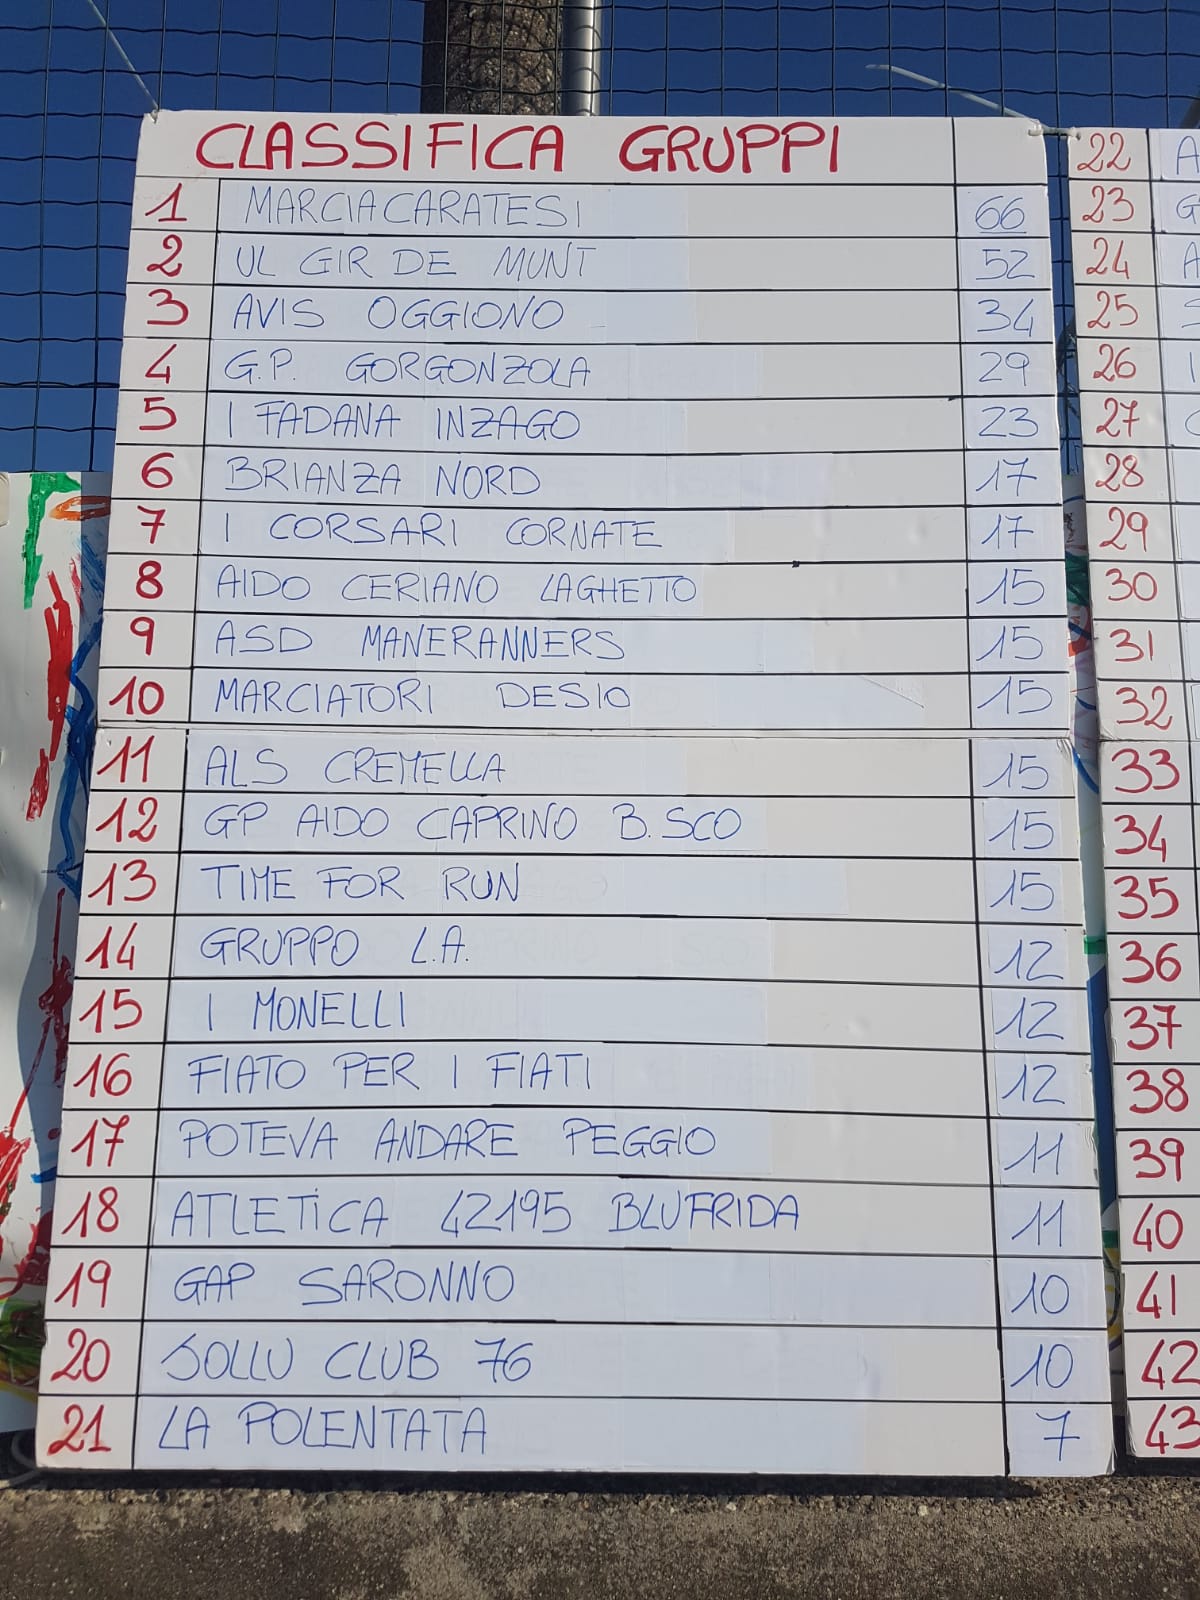 CLASSIFICA GRUPPI
1 MARCIACARATESI 66
2 UL GIR DE MUNT 52
3 AVIS OGGIONO 34
4 G.P. GORGONZOLA 29
5 I FADANA INZAGO 23
6 BRIANZA NORD 17
7 I CORSARI CORNATE 17
8 AIDO CERIANO LAGHETTO 15
9 ASD MANERANNERS 15
10 MARCIATORI DESIO 15
11 ALS CREMELLA 15
12 GP AIDO CAPRINO B.SCO 15
13 TIME FOR RUN 15
14 GRUPPO L.A. 12
15 I MONELLI 12
16 FIATO PER I FIATI 12
17 POTEVA ANDARE PEGGIO 11
18 ATLETICA 42195 BLUFRIDA 11
19 GAP SARONNO 10
20 SOLLU CLUB 76 10
21 LA POLENTATA 7
22 A
23 G
24 A
25
26 I
27
28
29
30
31
32
33
34
35
36
37
38
39
40
41
42
43